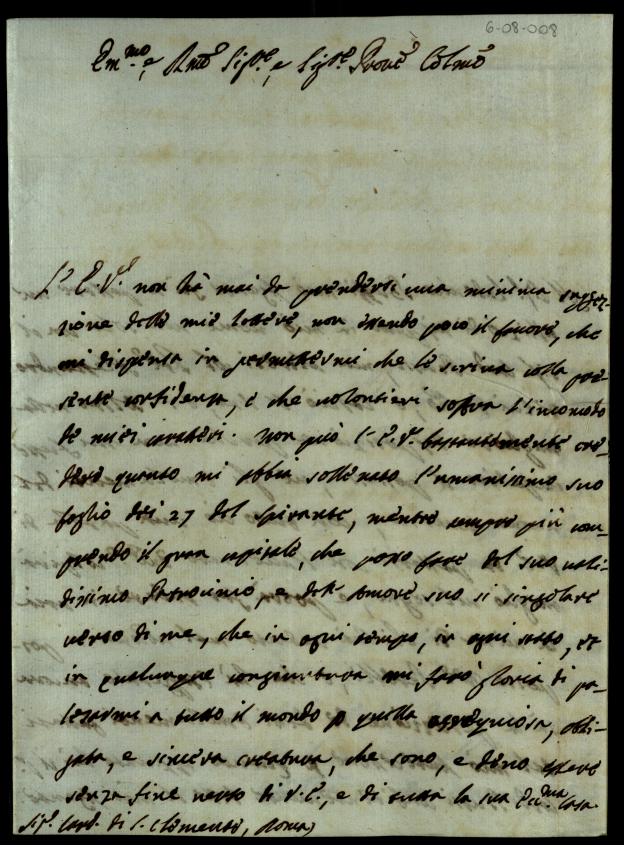 6-08-008
Em.mo, e Rmo Sig.re, e Sig.re Prone Colmo
L'E.V. non hà mai da prendersi una minima sugge-
zione delle mie lettere, non essendo poco il favore, che
mi dispensa in permettermi che le scriva colla pre-
sente confidenza, e che volontieri soffra l'incomodo
de miei caratteri. Non può l'E.V. bastantemente cre-
dere quanto mi abbia sollevato l'umanissimo suo
foglio dei 27 del spirante, mentre sempre più com-
prendo il gran capitale, che posso fare del suo vali-
dissimo Patrocinio, e dell'Amore suo si singolare
verso di me, che in ogni tempo, in ogni stato, et
in qualunque congiuntura mi farò gloria di pa-
lesarmi a tutto il mondo p quella ossequiosa, obli-
gata, e sincera creatura, che sono, e devo essere
senza fine verso di V.E., e di tutta la sua Ecc.ma Casa.
Sig.r Card. di S. Clemente, Roma